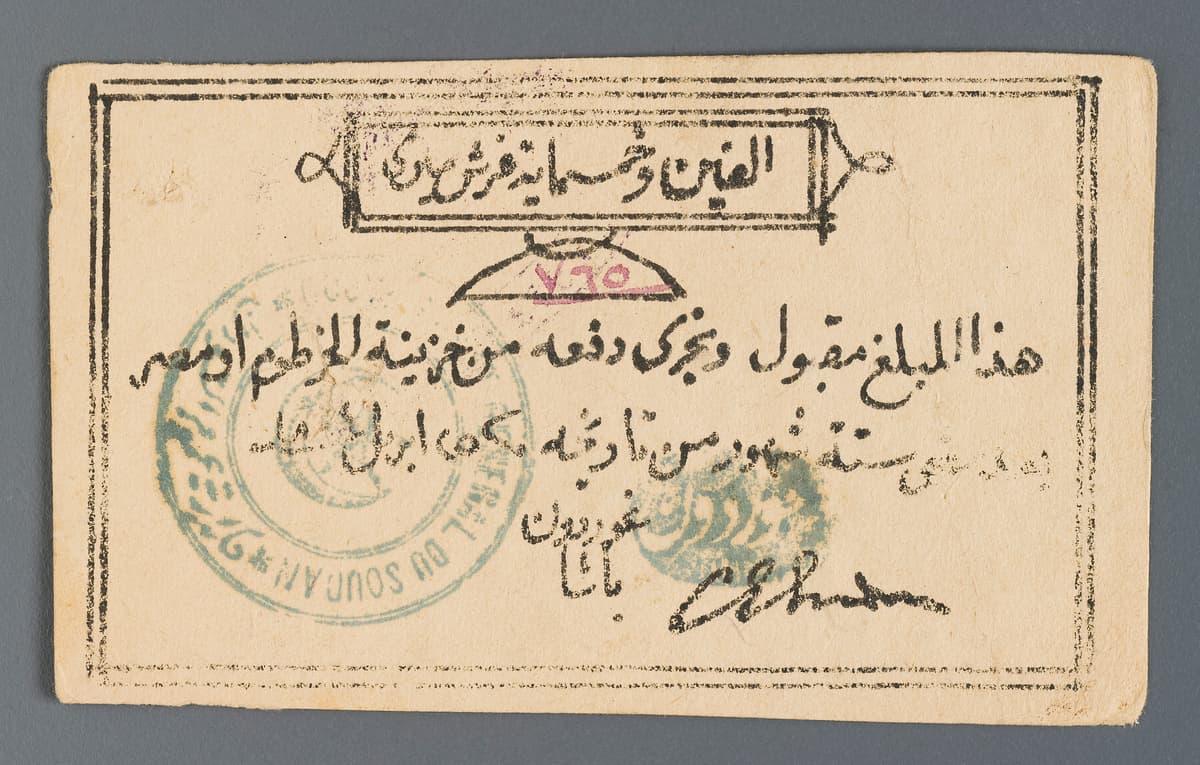 الفين وخمسماية غرش
٧٦٥
هذا المبلغ مقبول وتجرى دفعه من خزينة الخرطوم او مصر
بعد مضى ستة شهور من تاريخه ٢٥ ابريل
غوردون
باشا
DU SOUDAN